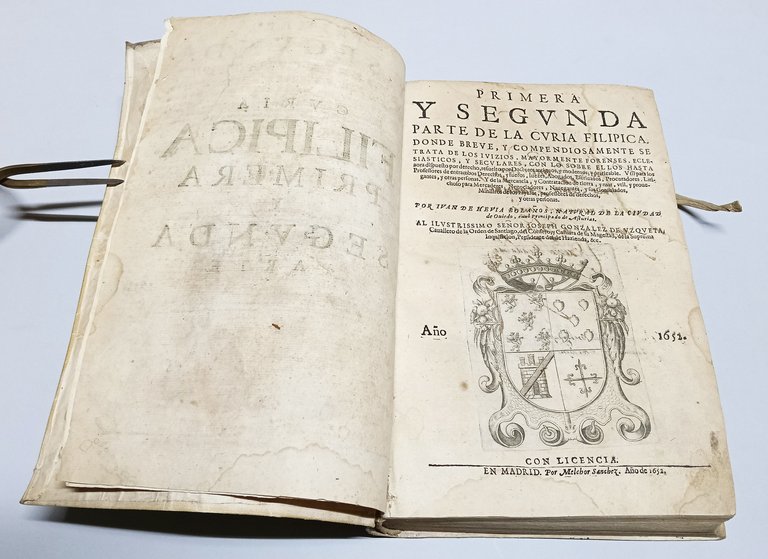 CVRIA
FILIPICA
PRIMERA
Y SEGVNDA
PARTE
PRIMERA
Y SEGVNDA
PARTE DE LA CVRIA FILIPICA,
DONDE BREVE, Y COMPENDIOSAMENTE SE
TRATA DE LOS IVIZIOS, MAYORMENTE FORENSES, ECLE-
SIASTICOS, Y SECVLARES, CON LO SOBRE ELLOS HASTA
aora dispuesto por derecho, resuelto por Doctores antiguos, y modernos, y praticable. Vtil para los
Professores de entrambos Derechos, y fueros, Iuezes, Abogados, Escriuanos, Procuradores, Liti-
gantes, y otras personas. Y de la Mercancia, y Contratacion de tierra, y mar, vtil, y proue-
choso para Mercaderes, Negociadores, Nauegantes, y sus Consulados,
Ministros de los Iuizios, professores de derechos,
y otras personas.
POR IVAN DE HEVIA BOLAÑOS, NATVRAL DE LA CIVDAD
de Ouiedo, en el Principado de Asturias.
AL ILVSTRISSIMO SEÑOR IOSEPH GONZALEZ DE VZQVETA,
Cauallero de la Orden de Santiago, del Consejo, y Camara de su Magestad, de la Suprema
Inquisicion, Presidente de Hazienda, &c.
Año 1652.
CON LICENCIA.
EN MADRID. Por Melchor Sanchez. Año de 1652.